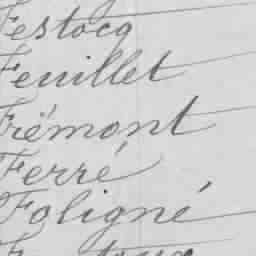 Festocq
Feuillet
Frémont
Ferré
Foligné